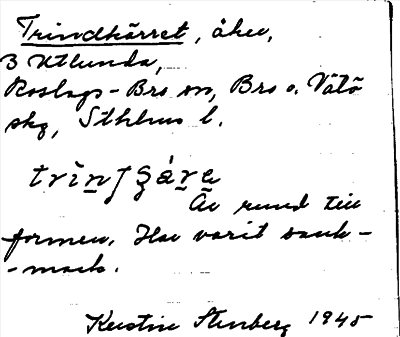 Trindkärret, åker,
3 Utlunda,
Roslags-Bro sn, Bro o. Vätö
skg, Sthlms l.
Är rund till
formen. Har varit sank-
-mark.
Kerstin Stenberg 1945